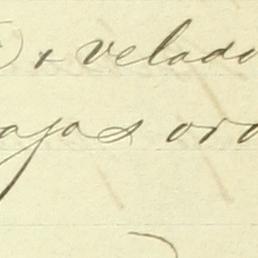 + velado
ajas oro